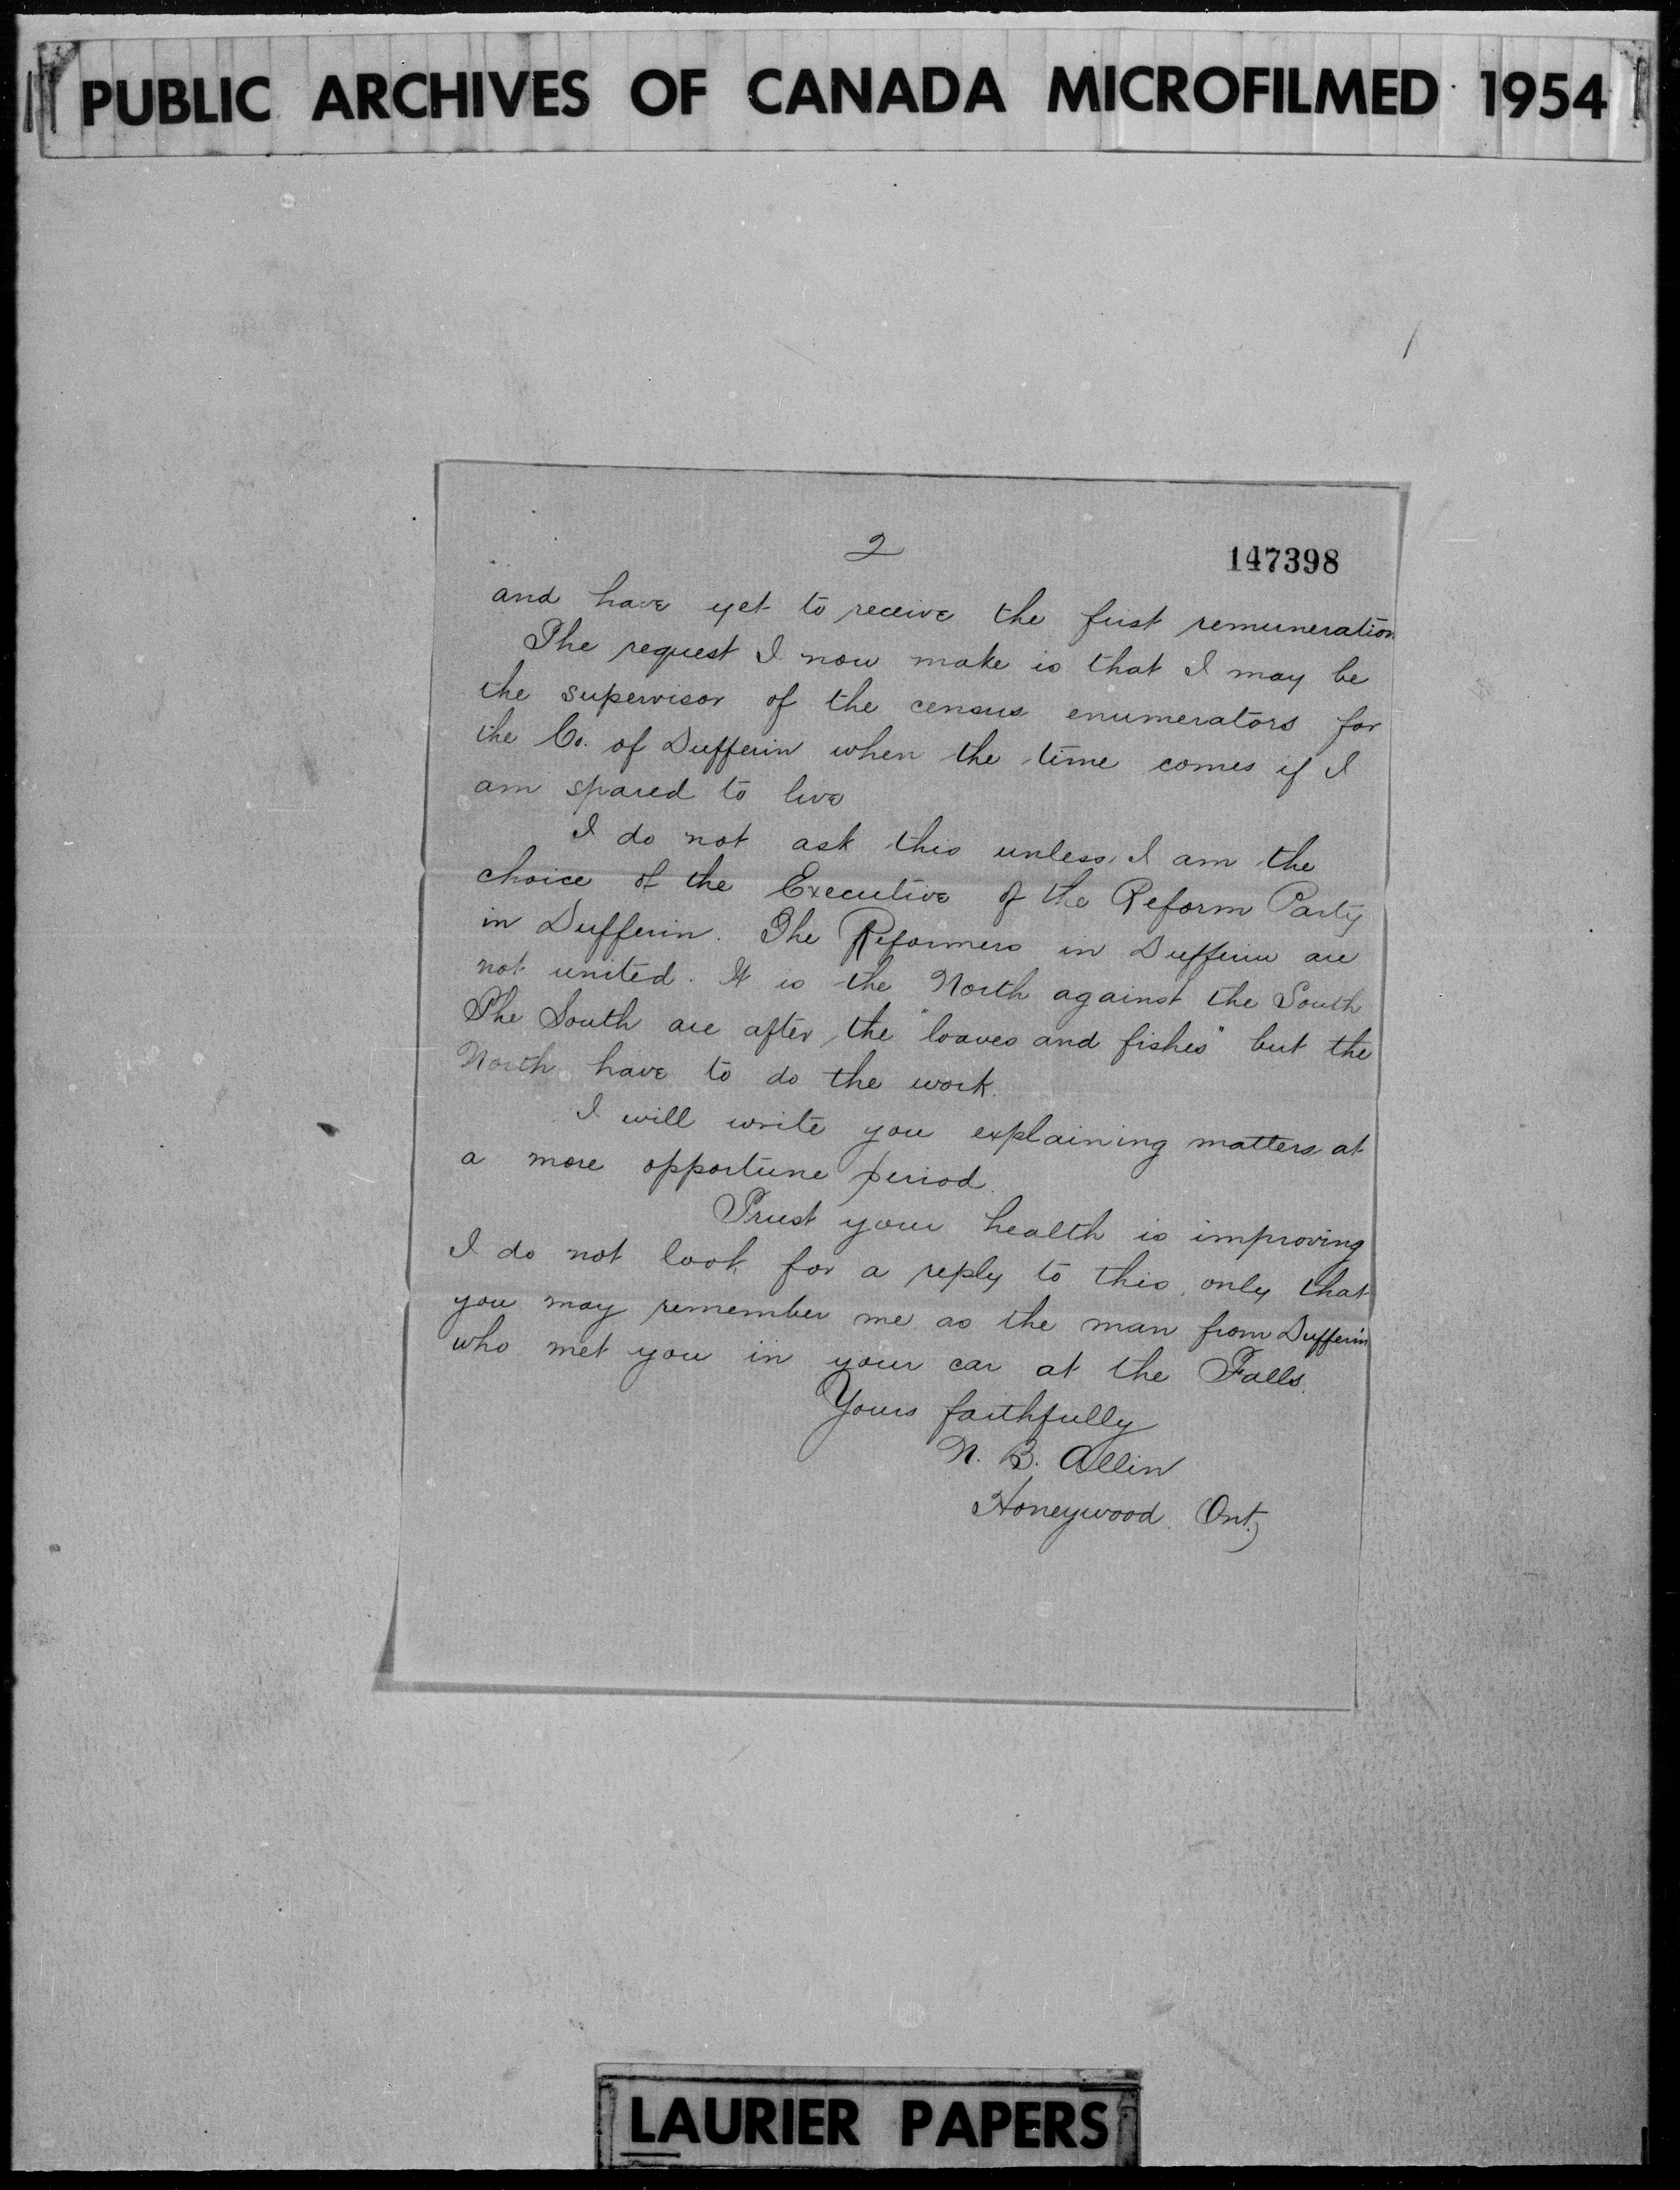 PUBLIC ARCHIVES OF CANADA MICROFILMED 1954
2
147398
and have yet to receive the first remuneration
The request I now make is that I may be
the supervisor of the census enumerators for
the Co. of Dufferin when the time comes if I
am spared to live
I do not ask this unless I am the
choice of the Executive of the Reform Party
in Dufferin. The Reformers in Dufferin are
not united. It is the North against the South
The South are after the "loaves and fishes" but the
North have to do the work.
I will write you explaining matters at
a more opportune period.
Trust your health is improving
I do not look for a reply to this, only that
you may remember me as the man from Dufferin
who met you in your car at the Falls.
Yours faithfully
N. B. Allin
Honeywood Ont.
LAURIER PAPERS